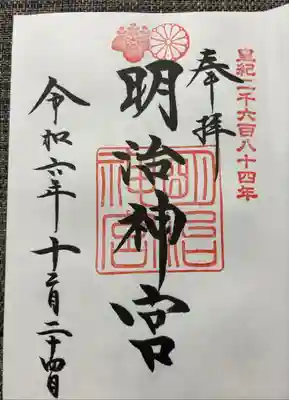 皇紀二千六百八十四年
奉拝
明治神宮
明治神宮
令和六年十二月二十四日